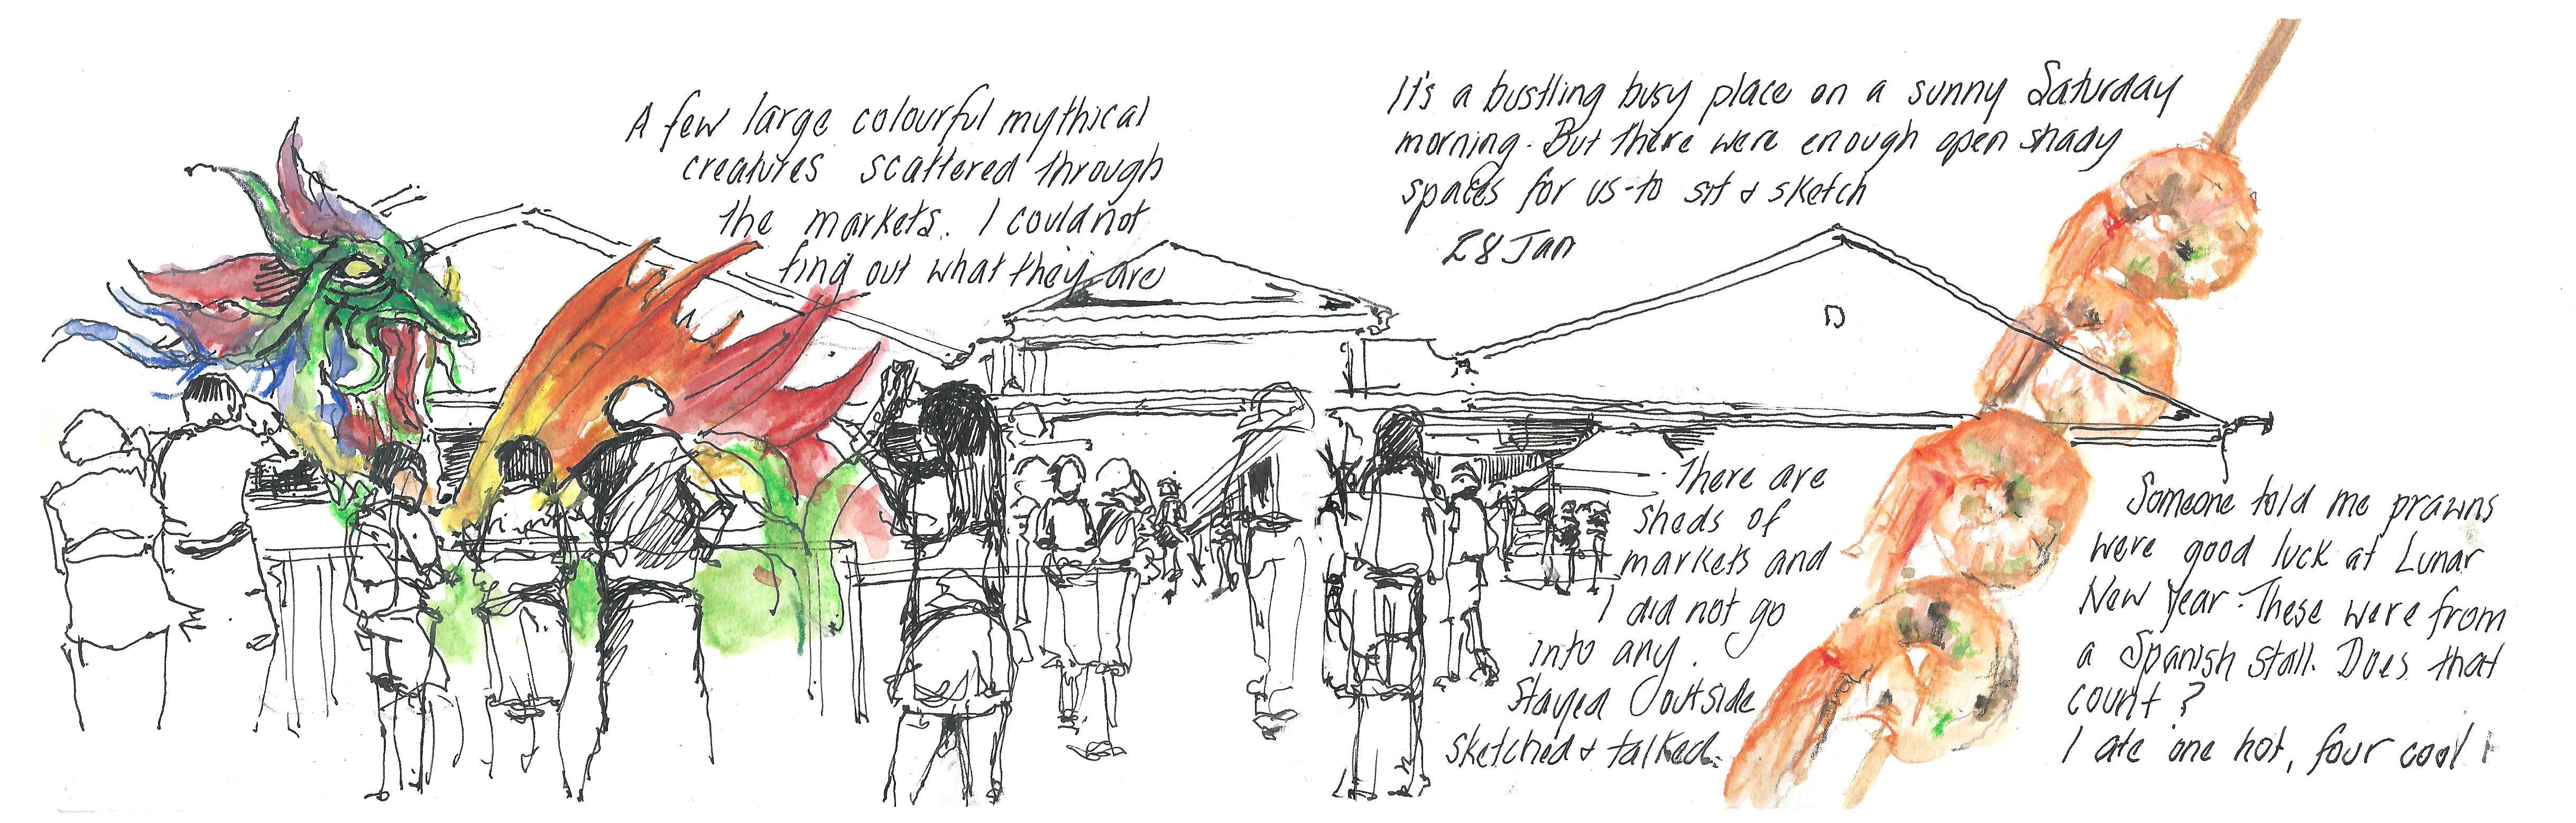 A few large colourful mythical
creatures scattered through
the markets. I could not
find out what they are
It's a bustling busy place on a sunny Saturday
morning. But there were enough open shady
spaces for us to sit & sketch
28 Jan
There are
sheds of
markets and
I did not go
into any.
Stayed outside
sketched & talked.
Someone told me prawns
were good luck at Lunar
New Year. These were from
a Spanish stall. Does that
count?
I ate one hot, four cool!